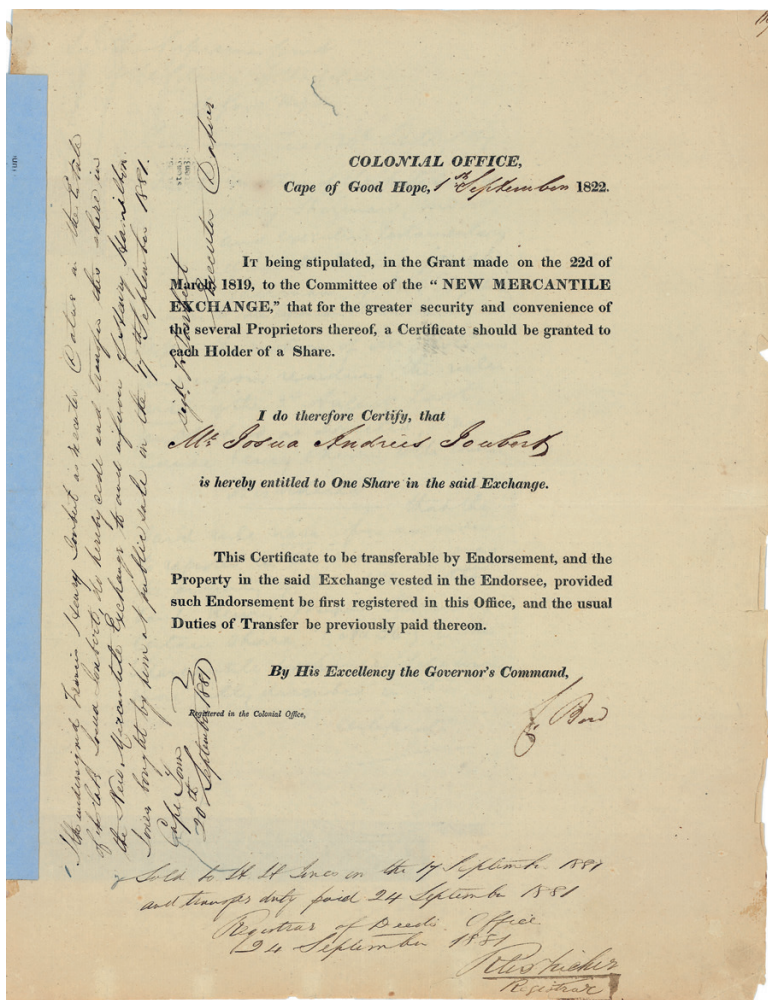 COLONIAL OFFICE,
Cape of Good Hope, 1st September 1822.
IT being stipulated, in the Grant made on the 22d of
March 1819, to the Committee of the “ NEW MERCANTILE
EXCHANGE,” that for the greater security and convenience of
the several Proprietors thereof, a Certificate should be granted to
each Holder of a Share.
I do therefore Certify, that
Mr Josua Andries Joubert
is hereby entitled to One Share in the said Exchange.
This Certificate to be transferable by Endorsement, and the
Property in the said Exchange vested in the Endorsee, provided
such Endorsement be first registered in this Office, and the usual
Duties of Transfer be previously paid thereon.
By His Excellency the Governor's Command,
Bird
Registered in the Colonial Office,
I the undersigned Francis Henry Joubert as executor Dative in the Estate
of the late Josua Joubert do hereby cede and transfer this share in
the New Mercantile Exchange to and in favor of Henry Hamilton
Jones bought by him at public sale on the 17th September 1881.
Cape Town
20th September 1881
sigd. Joubert
Executor Dative
Sold to H H Jones on the 17 September 1881
and transfer duty paid 24 September 1881
Registrar of Deeds Office
24 September 1881
Registrar